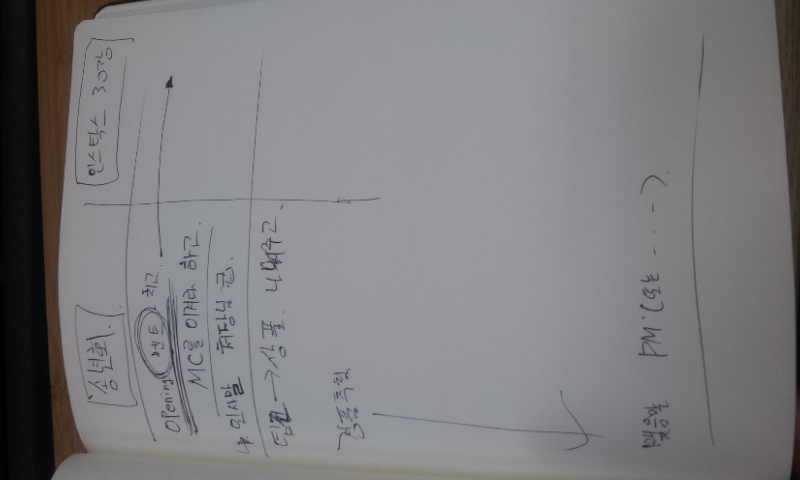 송년회.
인스탁스 30장
opening 멘트 하고.
MC를 이겨라 하고.
↳ 인사말 처장님 곧.
팀 → 상품. 나눠주고.
경품추첨
맺음말 PM (또는 - - - -).